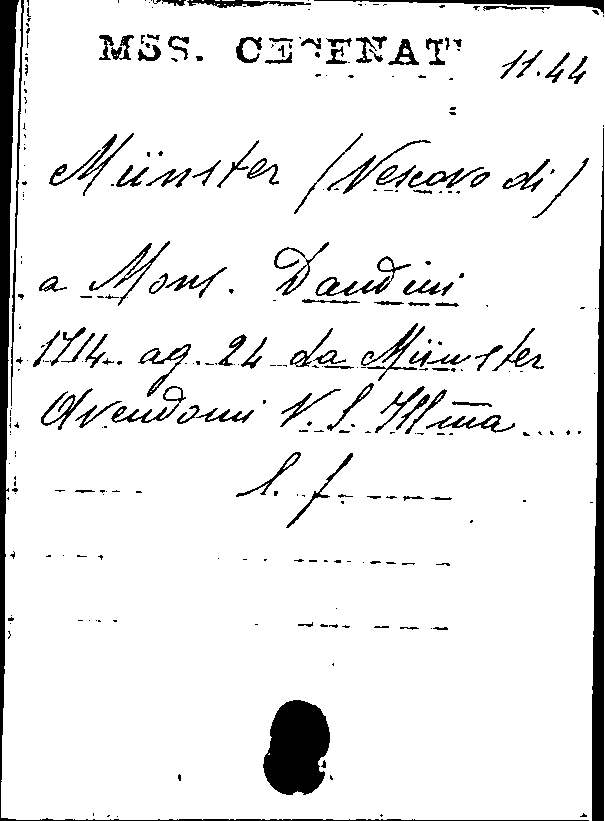 MSS. CESENAT
11.44
Münster (Vescovo di)
a Mons. Dandini
1714. ag. 24 da Münster
Avendomi V. S. Illma.....
S. f.